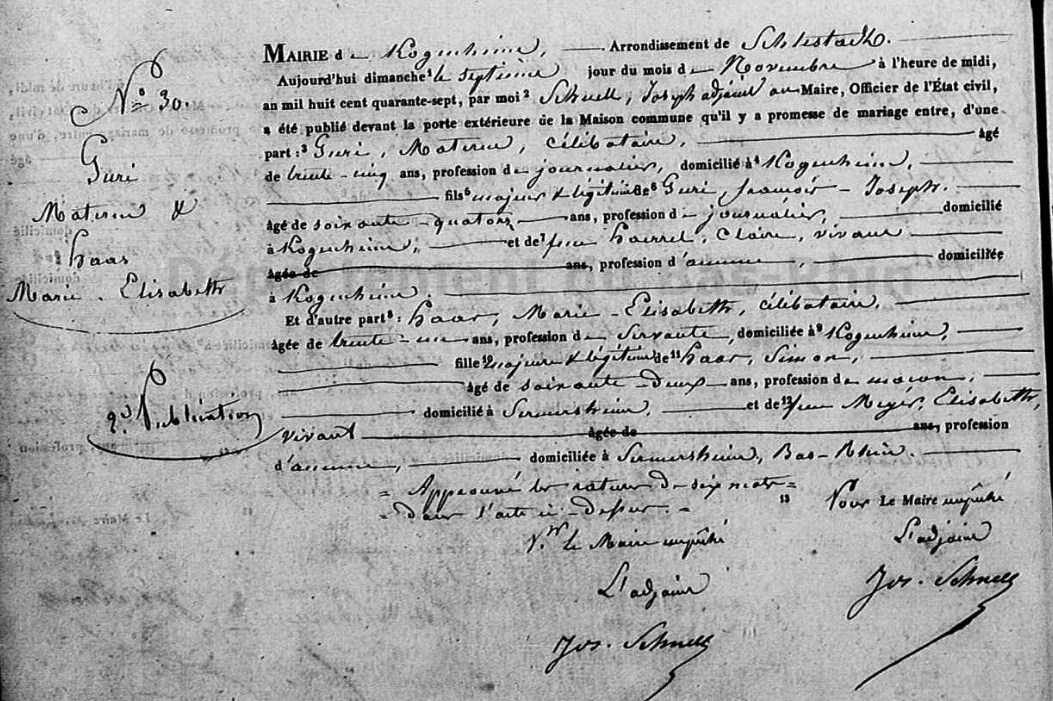 No 30.
Guri
Materne &
Haas
Marie-Elisabeth
2de Publication
MAIRIE de Kogenheim, Arrondissement de Schlestadt.
Aujourd'hui dimanche 1 le septième jour du mois de Novembre à l'heure de midi,
an mil huit cent quarante-sept, par moi 2 Schnell, Joseph adjoint au Maire, Officier de l'État civil,
a été publié devant la porte extérieure de la Maison commune qu'il y a promesse de mariage entre, d'une
part: 3 Guri, Materne, célibataire, âgé
de trente-cinq ans, profession de journalier, domicilié à 4 Kogenheim,
fils 5 majeur & légitime de 6 Guri, françois-Joseph.
âgé de soixante-quatorze ans, profession de journalier, domicilié
à Kogenheim, et de 7 feue Haerrel, Claire, vivant
âgée de ans, profession d'aucune, domiciliée
à Kogenheim.
Et d'autre part 8: Haas, Marie-Elisabeth, célibataire,
âgée de trente-un ans, profession de Servante, domiciliée à 9 Kogenheim,
fille 10 majeure & légitime de 11 Haas, Simon,
âgé de soixante-deux ans, profession de maçon,
domicilié à Sermersheim, et de 12 feue Meyer, Elisabeth,
vivant âgée de ans, profession
d'aucune, domiciliée à Sermersheim, Bas-Rhin.
= Approuvé la rature de six mots =
= dans l'acte ci-dessus. =
13
Pr le Maire empêché
L'adjoint
Jos. Schnell
Pour Le Maire empêché
L'adjoint
Jos. Schnell
Département du Bas-Rhin